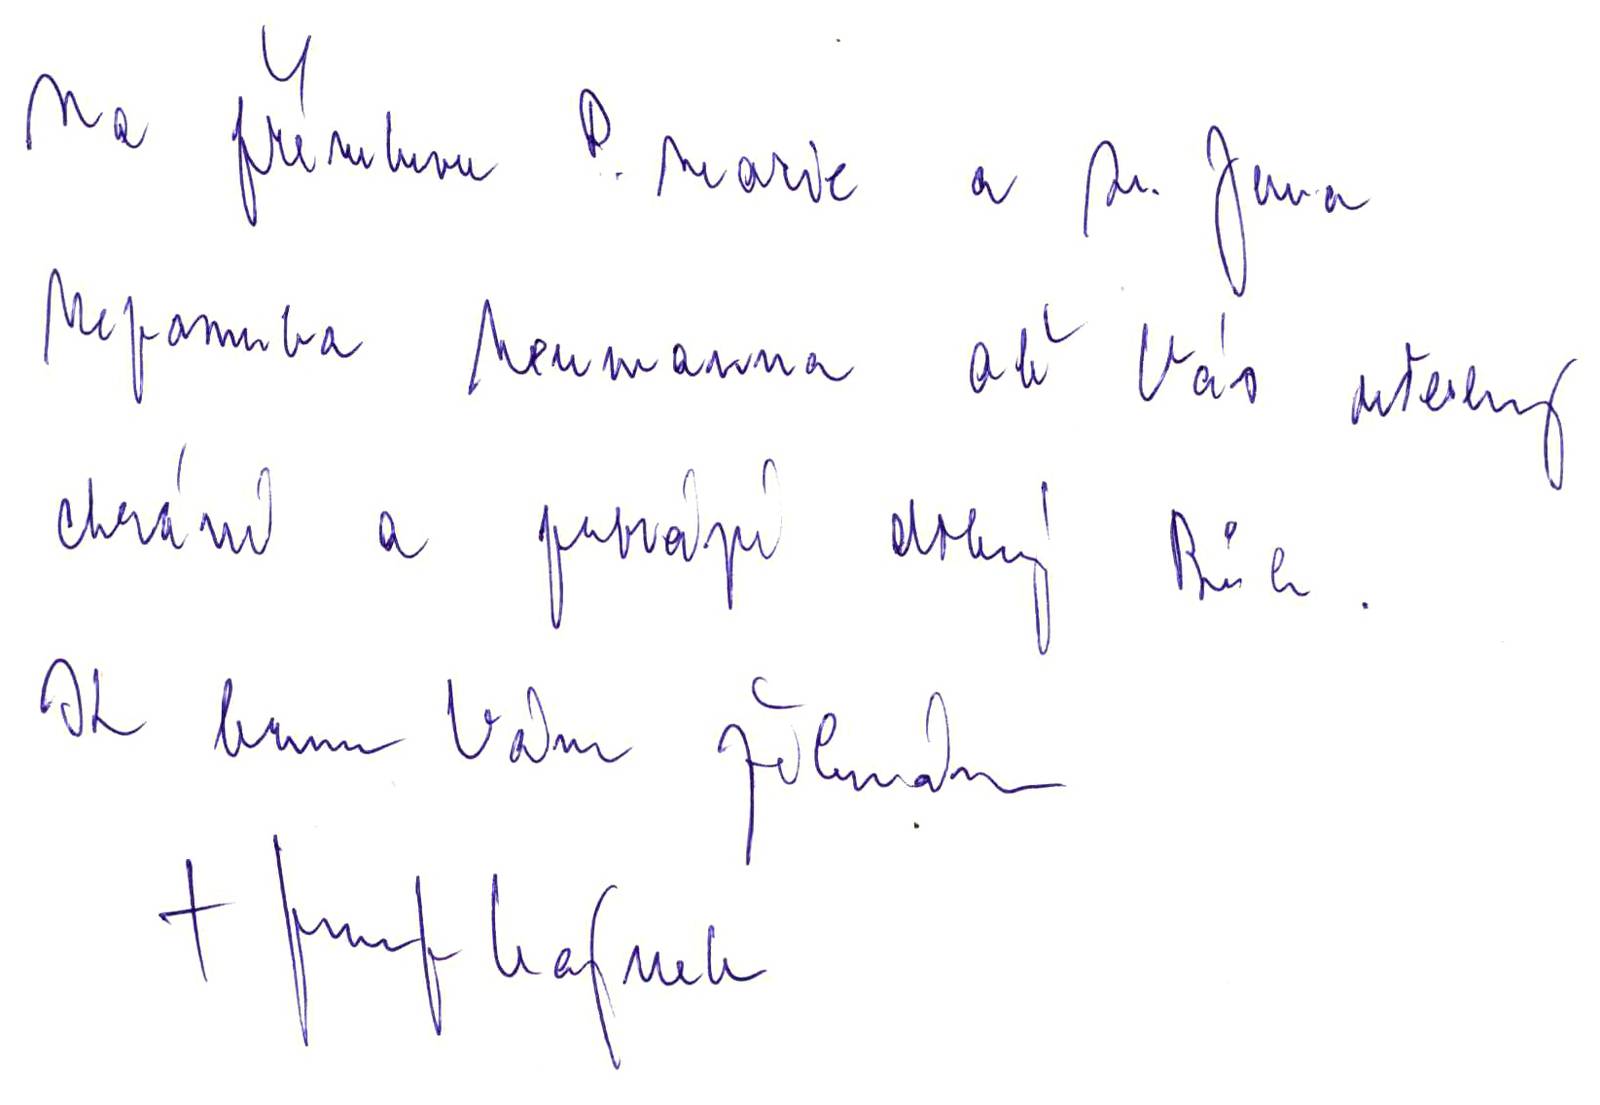 Na přímluvu P. Marie a sv. Jana
Nepomuka Neumanna ať Vás všechny
chrání a provází dobrý Bůh.
K tomu Vám žehnám
+ Josef Kajnek